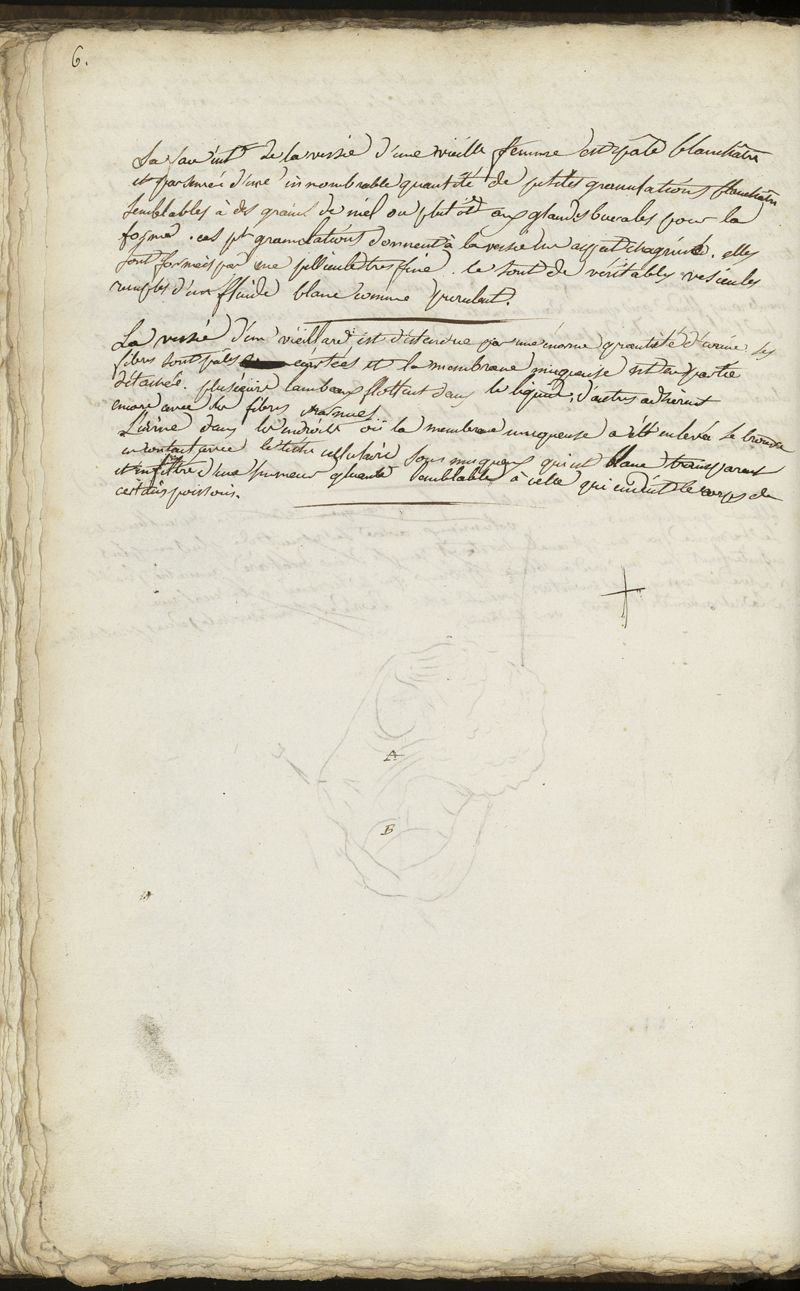 6.
La face int.e de la vessie d'une vieille femme est pâle blanchâtre
et parsemée d'une innombrable quantité de petites granulations blanchâtres
semblables à des grains de miel ou plutôt aux glandes bucales pour la
forme. ces pt granulations donnent à la vessie un aspect chagriné. elles
sont formées par une pellicule très fine. ce sont de véritables vesicules
remplies d'un fluide blanc comme purulent.
La vessie d'un vieillard est distendue par une énorme quantité d'urine ses
fibres sont pâles écartées et la membrane muqueuse est en partie
détachée. plusieurs lambeaux flottent dans le liquide, d'autres adhèrent
encore avec les fibres charnues.
L'urine dans les endroits où la membrane muqueuse a été enlevée se trouve
en contact avec le tissu cellulaire sous muqueux qui est blanc transparent
et infiltré d'une humeur gluante semblable à celle qui enduit le corps de
certains poissons.
A
B